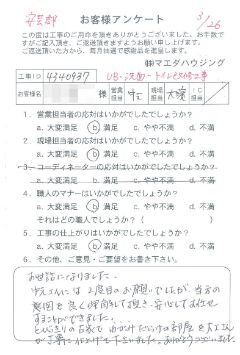 安芸郡
お客様アンケート
3/26
この度は工事のご用命を頂きありがとうございました。お手数で
すがご記入頂き、ご返送頂きますようお願い申し上げます。
ご返送頂いた方から、毎月抽選で感謝品を進呈します。
㈱マエダハウジング
工事ID 4140937 UB・洗面・トイレ改修工事
様 営業担当 現場担当 大塚 IC担当
1. 営業担当者の応対はいかがでしたでしょうか?
a. 大変満足 b 満足 c. やや不満 d. 不満
2. 現場担当者の応対はいかがでしたでしょうか?
a. 大変満足 b 満足 c. やや不満 d. 不満
3. コーディネーターの応対はいかがでしたでしょうか?
a. 大変満足 b. 満足 c. やや不満 d. 不満
4. 職人のマナーはいかがでしたでしょうか?
a. 大変満足 b 満足 c. やや不満 d. 不満
それはどの職人でしょうか?( )
5. 工事の仕上がりはいかがでしたでしょうか?
a. 大変満足 b 満足 c. やや不満 d. 不満
6. その他、ご意見・ご要望をお書き下さい。
お世話になりました。
さんには2度目のお願いでしたが、当方の
意図を良く理解して頂き、安心してお任せ
することができました。
て下さいました。ありがとうございました